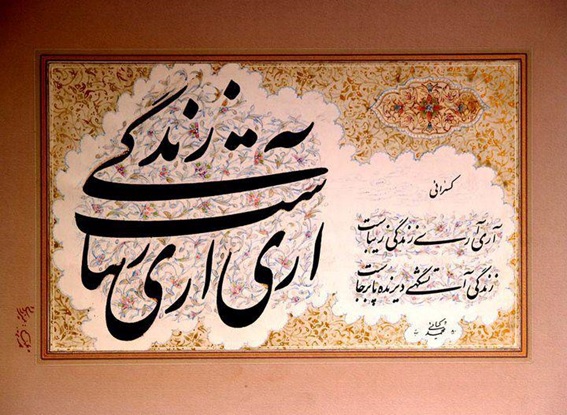 آری آری زندگی زیباست
کسرائی
آری آری زندگی زیباست
زندگی آتشگهی دیرنده پابرجاست